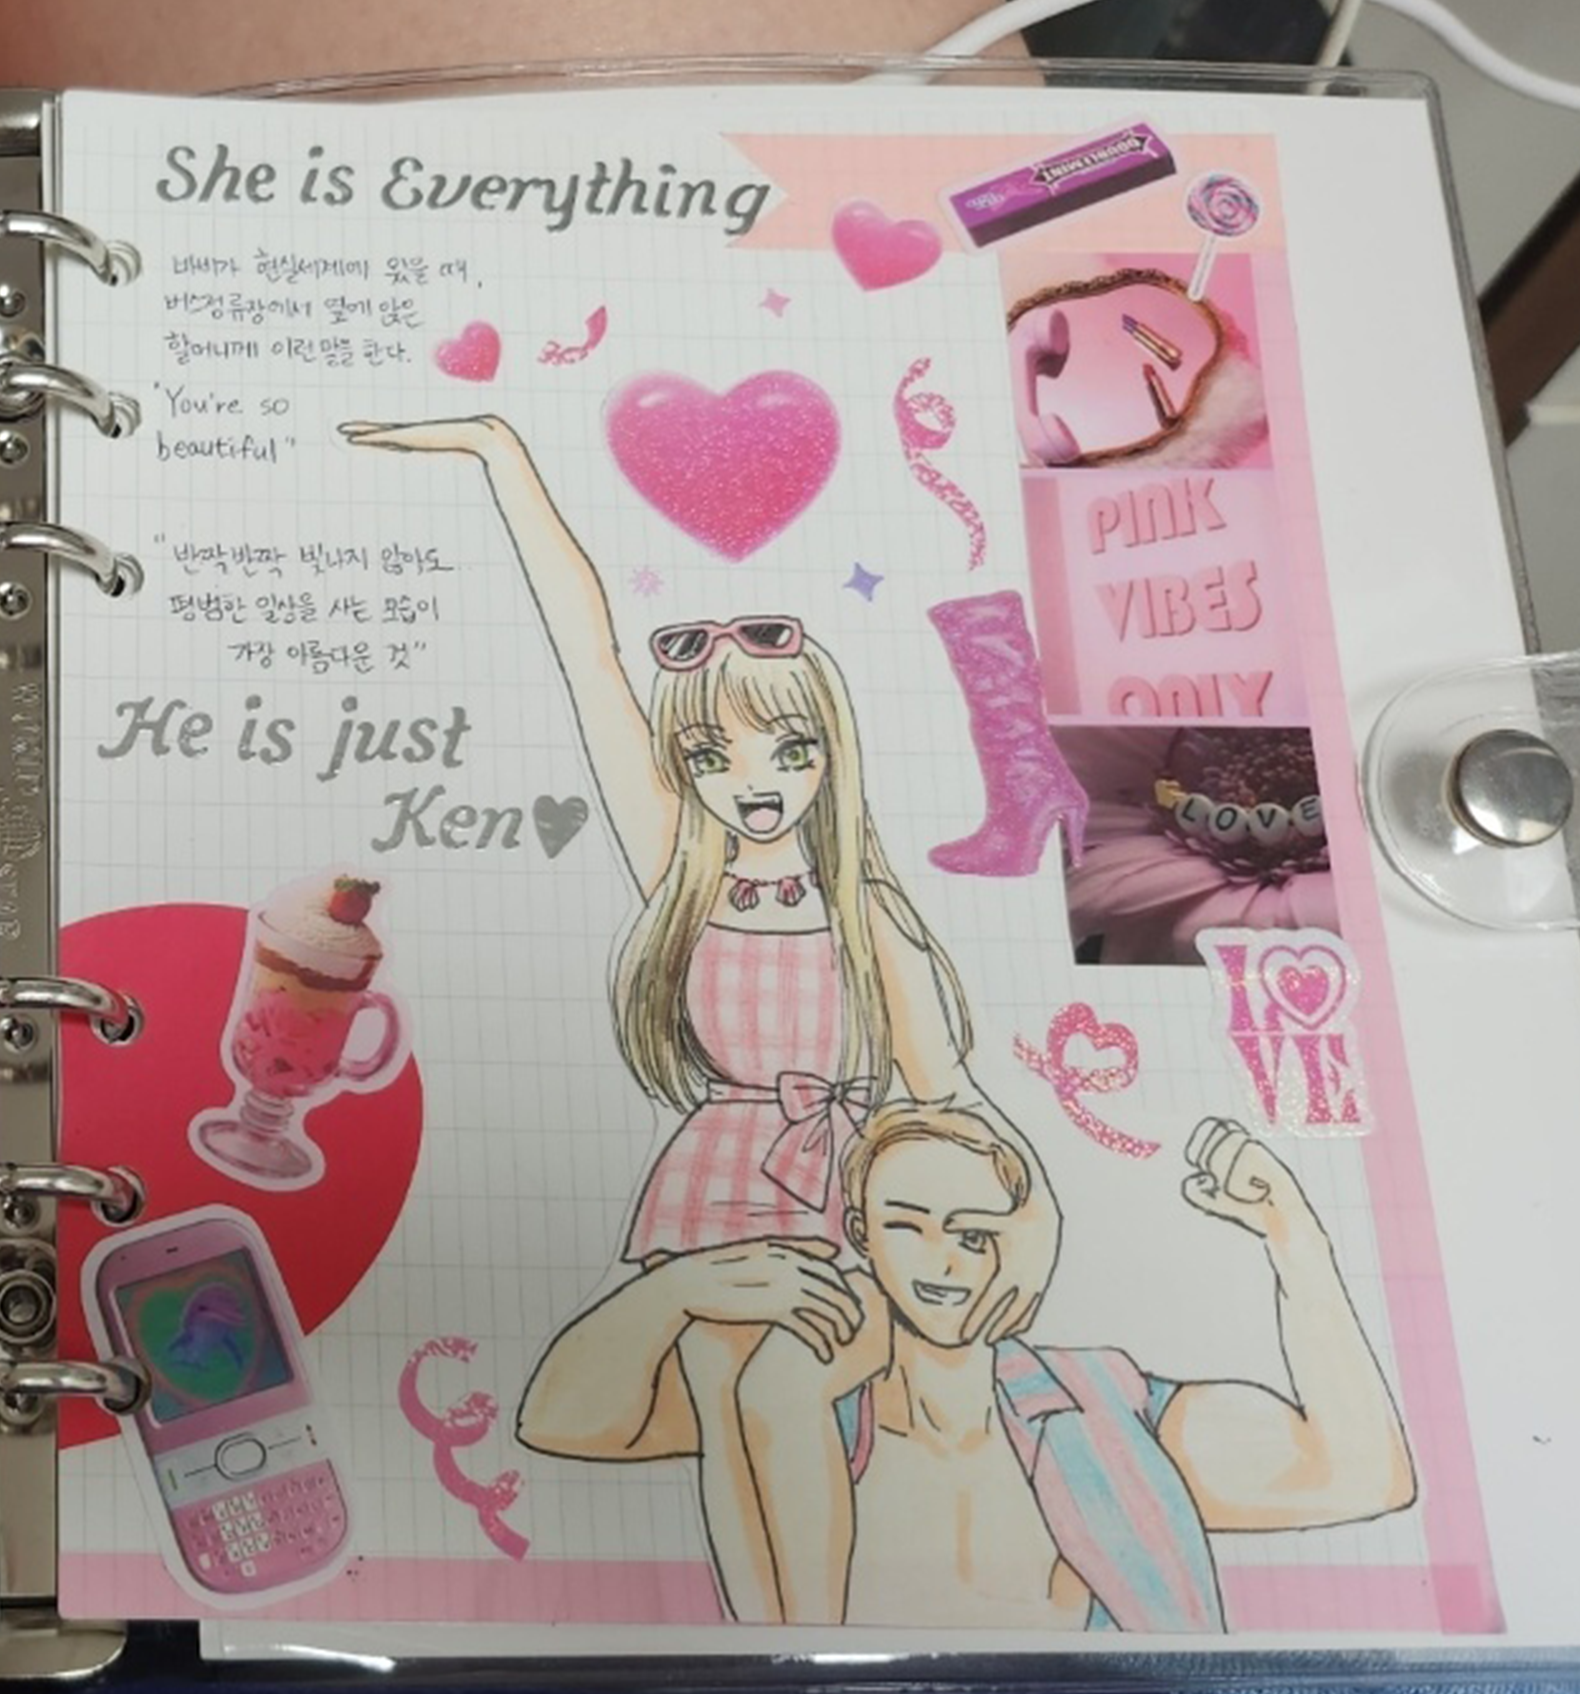 She is Everything
바비가 현실세계에 왔을 때,
버스정류장에서 옆에 앉은
할머니께 이런 말을 한다.
"You're so
beautiful"
"반짝반짝 빛나지 않아도..
평범한 일상을 사는 모습이
가장 아름다운 것"
He is just
Ken♥
DOUBLEMINT
PINK
VIBES
ONLY
LOVE
LOVE